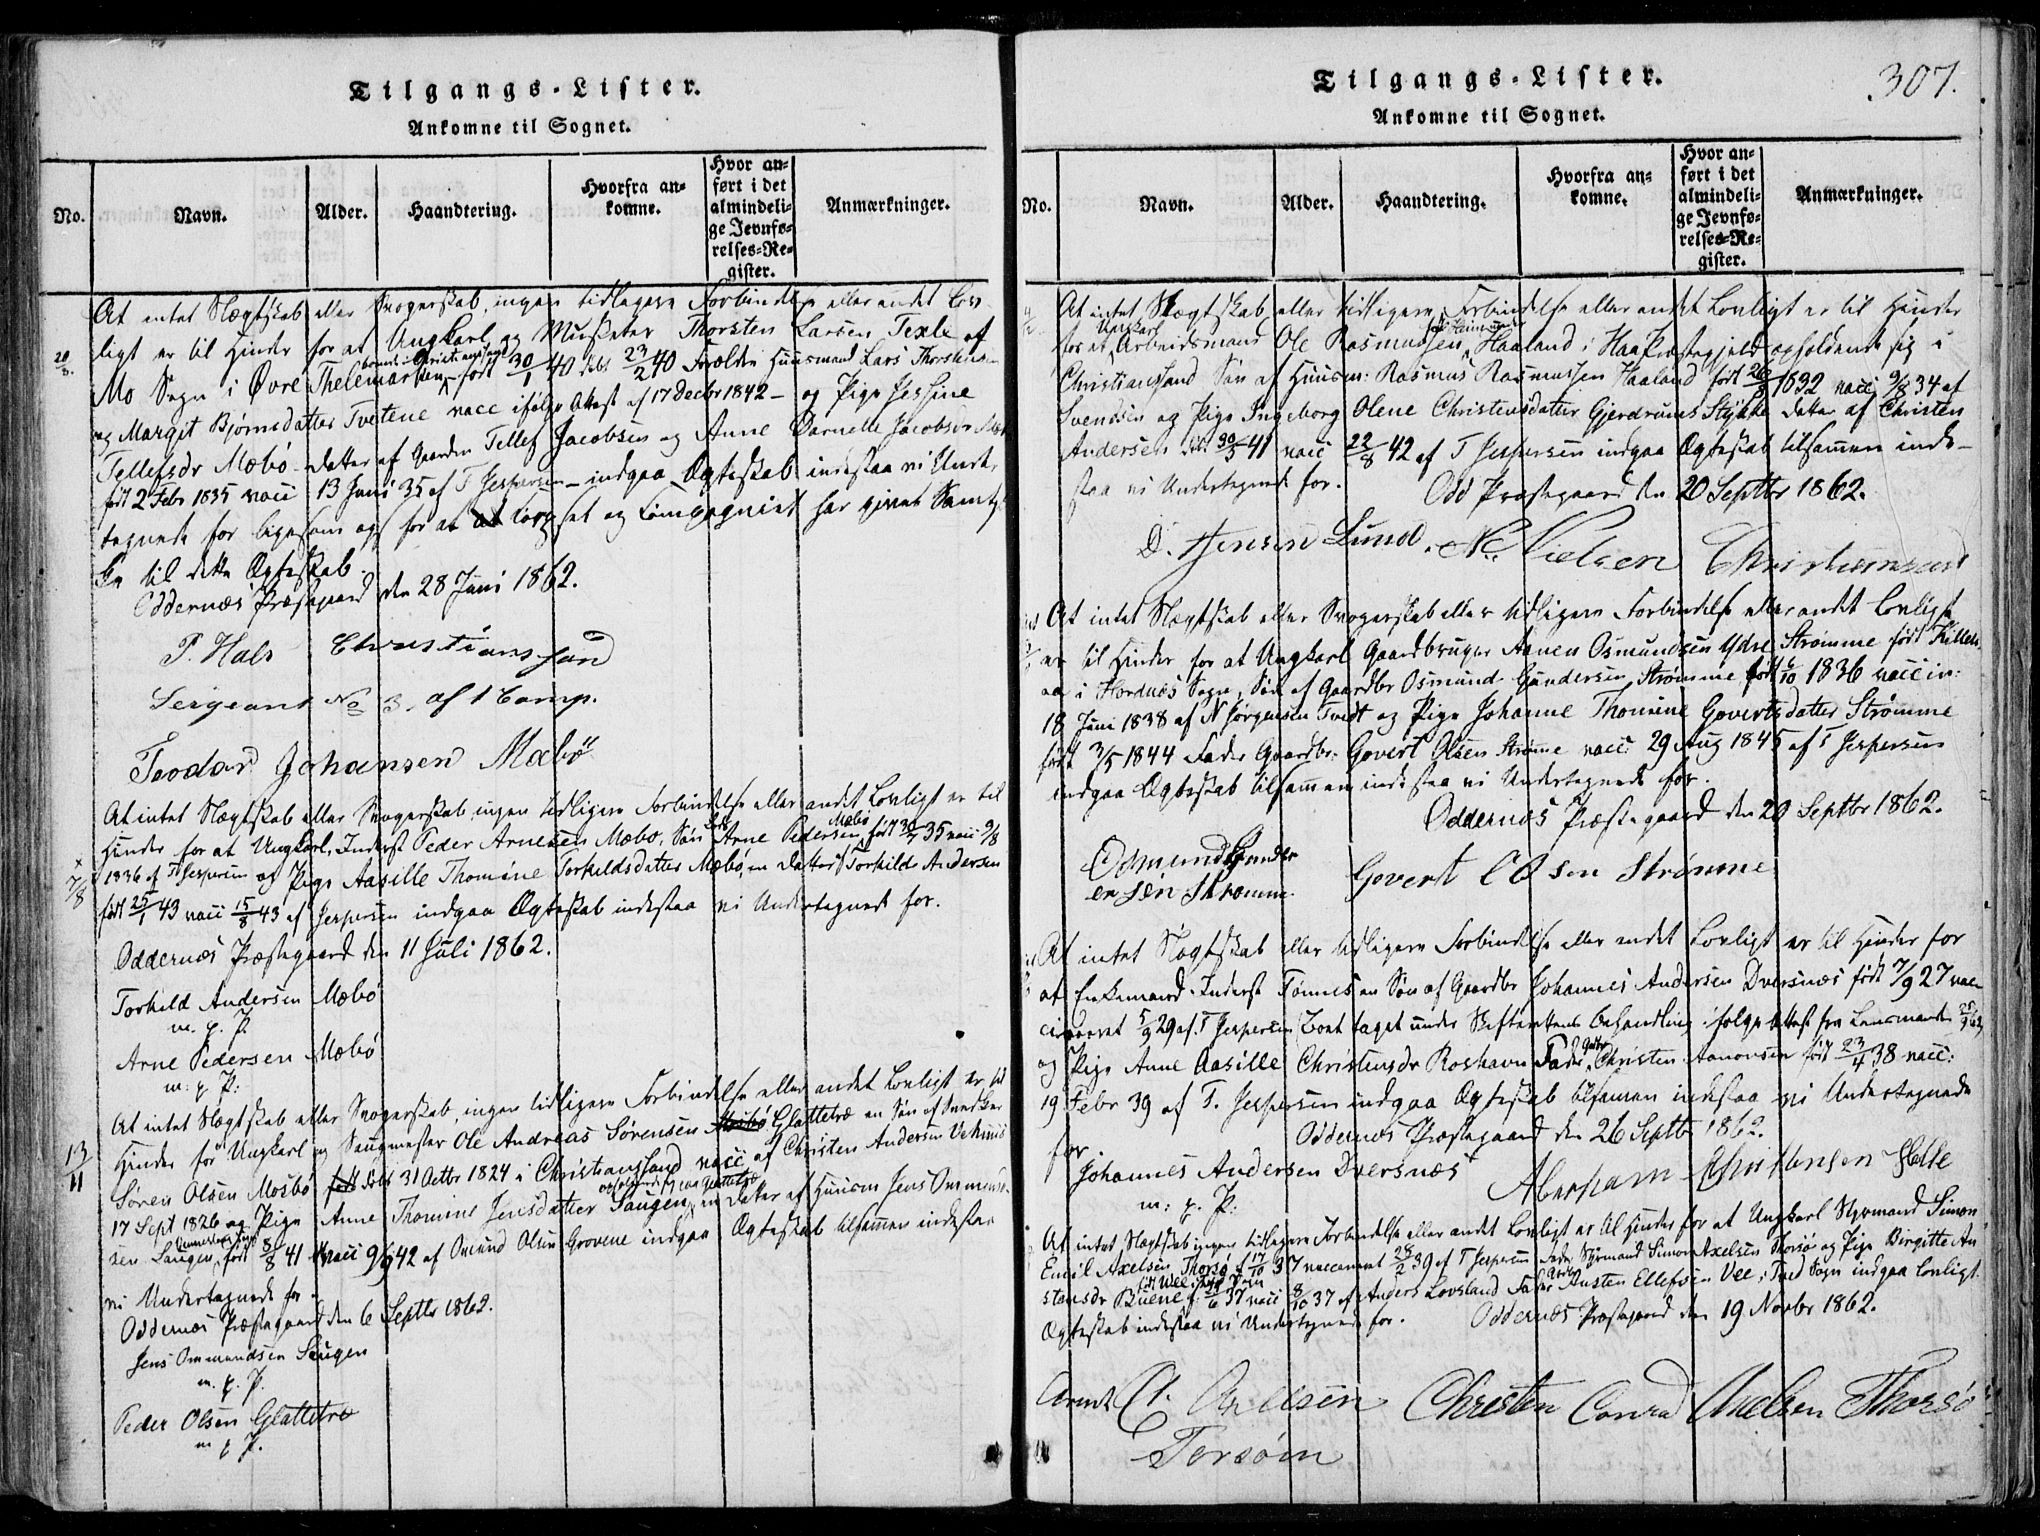 Tilgangs-Lister.
Ankomne til Sognet.
No.
Navn.
Alder.
Haandtering.
Hvorfra an-
komne.
Hvor an-
ført i det
almindeli-
ge Jevnfø-
relses-Re-
gister.
Anmærkninger.
At intet Slægtskab eller Svogerskab, ingen tidligere Forbindelse eller andet Lov-
ligt er til Hinder for at Ungkarl og Musketer Thorsten Larsen Texle af
28/8
Mo Sogn i Øvre Thelemarken, født 30/1 40 døbt 23/2 40 Forældre Huusmand Lars Thorstens
og Margit Bjørnsdatter Tvetene vacc ifølge Attest af 17 Decbr 1842 – og Pige Jessine
Tellefsdr Mæbø – Datter af Gaarden Tellef Jacobsen og Anne Darnelle Jacobsdr
født 2 Febr 1835 vacc 13 Juni 35 af T Jespersen – indgaa Ægteskab indestaa vi Under-
tegnede for ligesom og for at Corpset og Compagniet har givet Samty-
ke til dette Ægteskab.
Oddernæs Præstegaard den 28 Juni 1862.
P. Hals Christianssand
Sergeant No 3. af 1 Comp.
Teodor Johansen Mæbø
At intet Slægtskab eller Svogerskab, ingen tidligere Forbindelse eller andet Lovligt er til
Mæbø
Hinder for at Ungkarl, Inderst Peder Arnesen Mæbø, Søn af Arne Pedersen, født 30/7 35 vacc 9/8
7/8
1836 af T Jespersen og Pige Aasille Thomine Torkildsdatter Mæbø, en Datter af Torkild Andersen
født 25/1 43 vacc 15/8 43 af Jespersen indgaa Ægteskab indestaa vi Undertegnede for.
Oddernæs Præstegaard den 11 Juli 1862.
Torkild Andersen Mæbø
m. p. P.
Arne Pedersen Mæbø
m. p. P.
At intet Slægtskab eller Svogerskab, ingen tidligere Forbindelse eller andet Lovligt er til
13/11
Hinder for Ungkarl og Saugmester Ole Andreas Sørensen Glattetre en Søn af Snedker
Søren Olsen Mosbø født 31 Octbr 1824 i Christianssand vacc af Christen Andersen
17 Sept 1826 og Pige Anne Thomine Jensdatter Saugen, en Datter af Huusm Jens Ommund-
sen Saugen, født 8/8 41 vacc 9/9 42 af Omund Olsen Grovene indgaa Ægteskab tilsammen indestaa
vi Undertegnede for.
Oddernæs Præstegaard den 6 Septbr 1862.
Jens Ommundsen Saugen
m. p. P.
Peder Olsen Glattetre
m p P.
307.
Tilgangs-Lister.
Ankomne til Sognet.
No.
Navn.
Alder.
Haandtering.
Hvorfra an-
komne.
Hvor an-
ført i det
almindeli-
ge Jevnfø-
relses-Re-
gister.
Anmærkninger.
At intet Slægtskab eller tidligere Forbindelse eller andet Lovligt er til Hinder
Ungkarl
for at Arbeidsmand Ole Rasmussen Haaland i Haa Præstegjeld opholdende sig i
Christianssand Søn af Huusm: Rasmus Rasmussen Haaland født 26/3 1832 vacc 9/8 34 af
Svendsen og Pige Ingeborg Olene Christensdatter Gjerdrums Stykke Datter af Christen
Andersen født 30/3 41 vacc 22/8 42 af T Jespersen indgaa Ægteskab tilsammen inde-
staa vi Undertegnede for.
Odd Præstegaard den 20 Septbr 1862.
D. Hensen Lund. N. Nielsen Christianssand
At intet Slægtskab eller Svogerskab eller tidligere Forbindelse eller andet Lovligt
er til Hinder for at Ungkarl Gaardbruger Aanen Osmundsen Ydre Strømme født
i Hordnæs Sogn, Søn af Gaardbr Osmund Gundersen Strømme født 6/10 1836 vaccin:
18 Juni 1838 af N Jørgensen Tvedt og Pige Johanne Thomine Govertsdatter Strømme
født 3/5 1844 Fader Gaardbr: Govert Olsen Strømme vacc: 29 Aug 1845 af T Jespersen
indgaa Ægteskab tilsammen indestaa vi Undertegnede for.
Oddernæs Præstegaard den 20 Septbr 1862.
Osmund Gunder
ensen Strømme. Govert Olsen Strømme
At intet Slægtskab eller tidligere Forbindelse eller andet Lovligt er til Hinder for
at Enkemand Inderst Tønnes en Søn af Gaardbr Johannes Andersen Dversnæs født 7/9 27 vac-
cineret 5/9 29 af T Jespersen (Boet taget under Skifterettens Behandling ifølge Attest fra Lensmanden
og Pige Anne Aasille Christensdr Roshavn Fader Christen Aanonsen født 23/4 38 vacc:
19 Febr 39 af T. Jespersen indgaa Ægteskab tilsammen indestaa vi Undertegnede
for
Oddernæs Præstegaard den 26 Septbr 1862.
Johannes Andersen Dversnæs Abraham Christensen
m. p. P.
At intet Slægtskab ingen tidligere Forbindelse eller andet Lovligt er til Hinder for at Ungkarl Styrmand Simon
Emil Axelsen Thorsø f 17/10 37 vaccineret 28/2 39 af T Jespersen Fader Styrmand Simon Axelsen Thorsø og Pige Birgitte An
stensdr Buene f. 37 vacc 8/10 37 af Anders Lovsland Fader Austen Ellefsen Vee i Tved Sogn indgaa Lovligt
Ægteskab indestaa vi Undertegnede for. Oddernæs Præstegaard den 19 Novbr 1862.
Christen Conrad Axelsen Thorsø